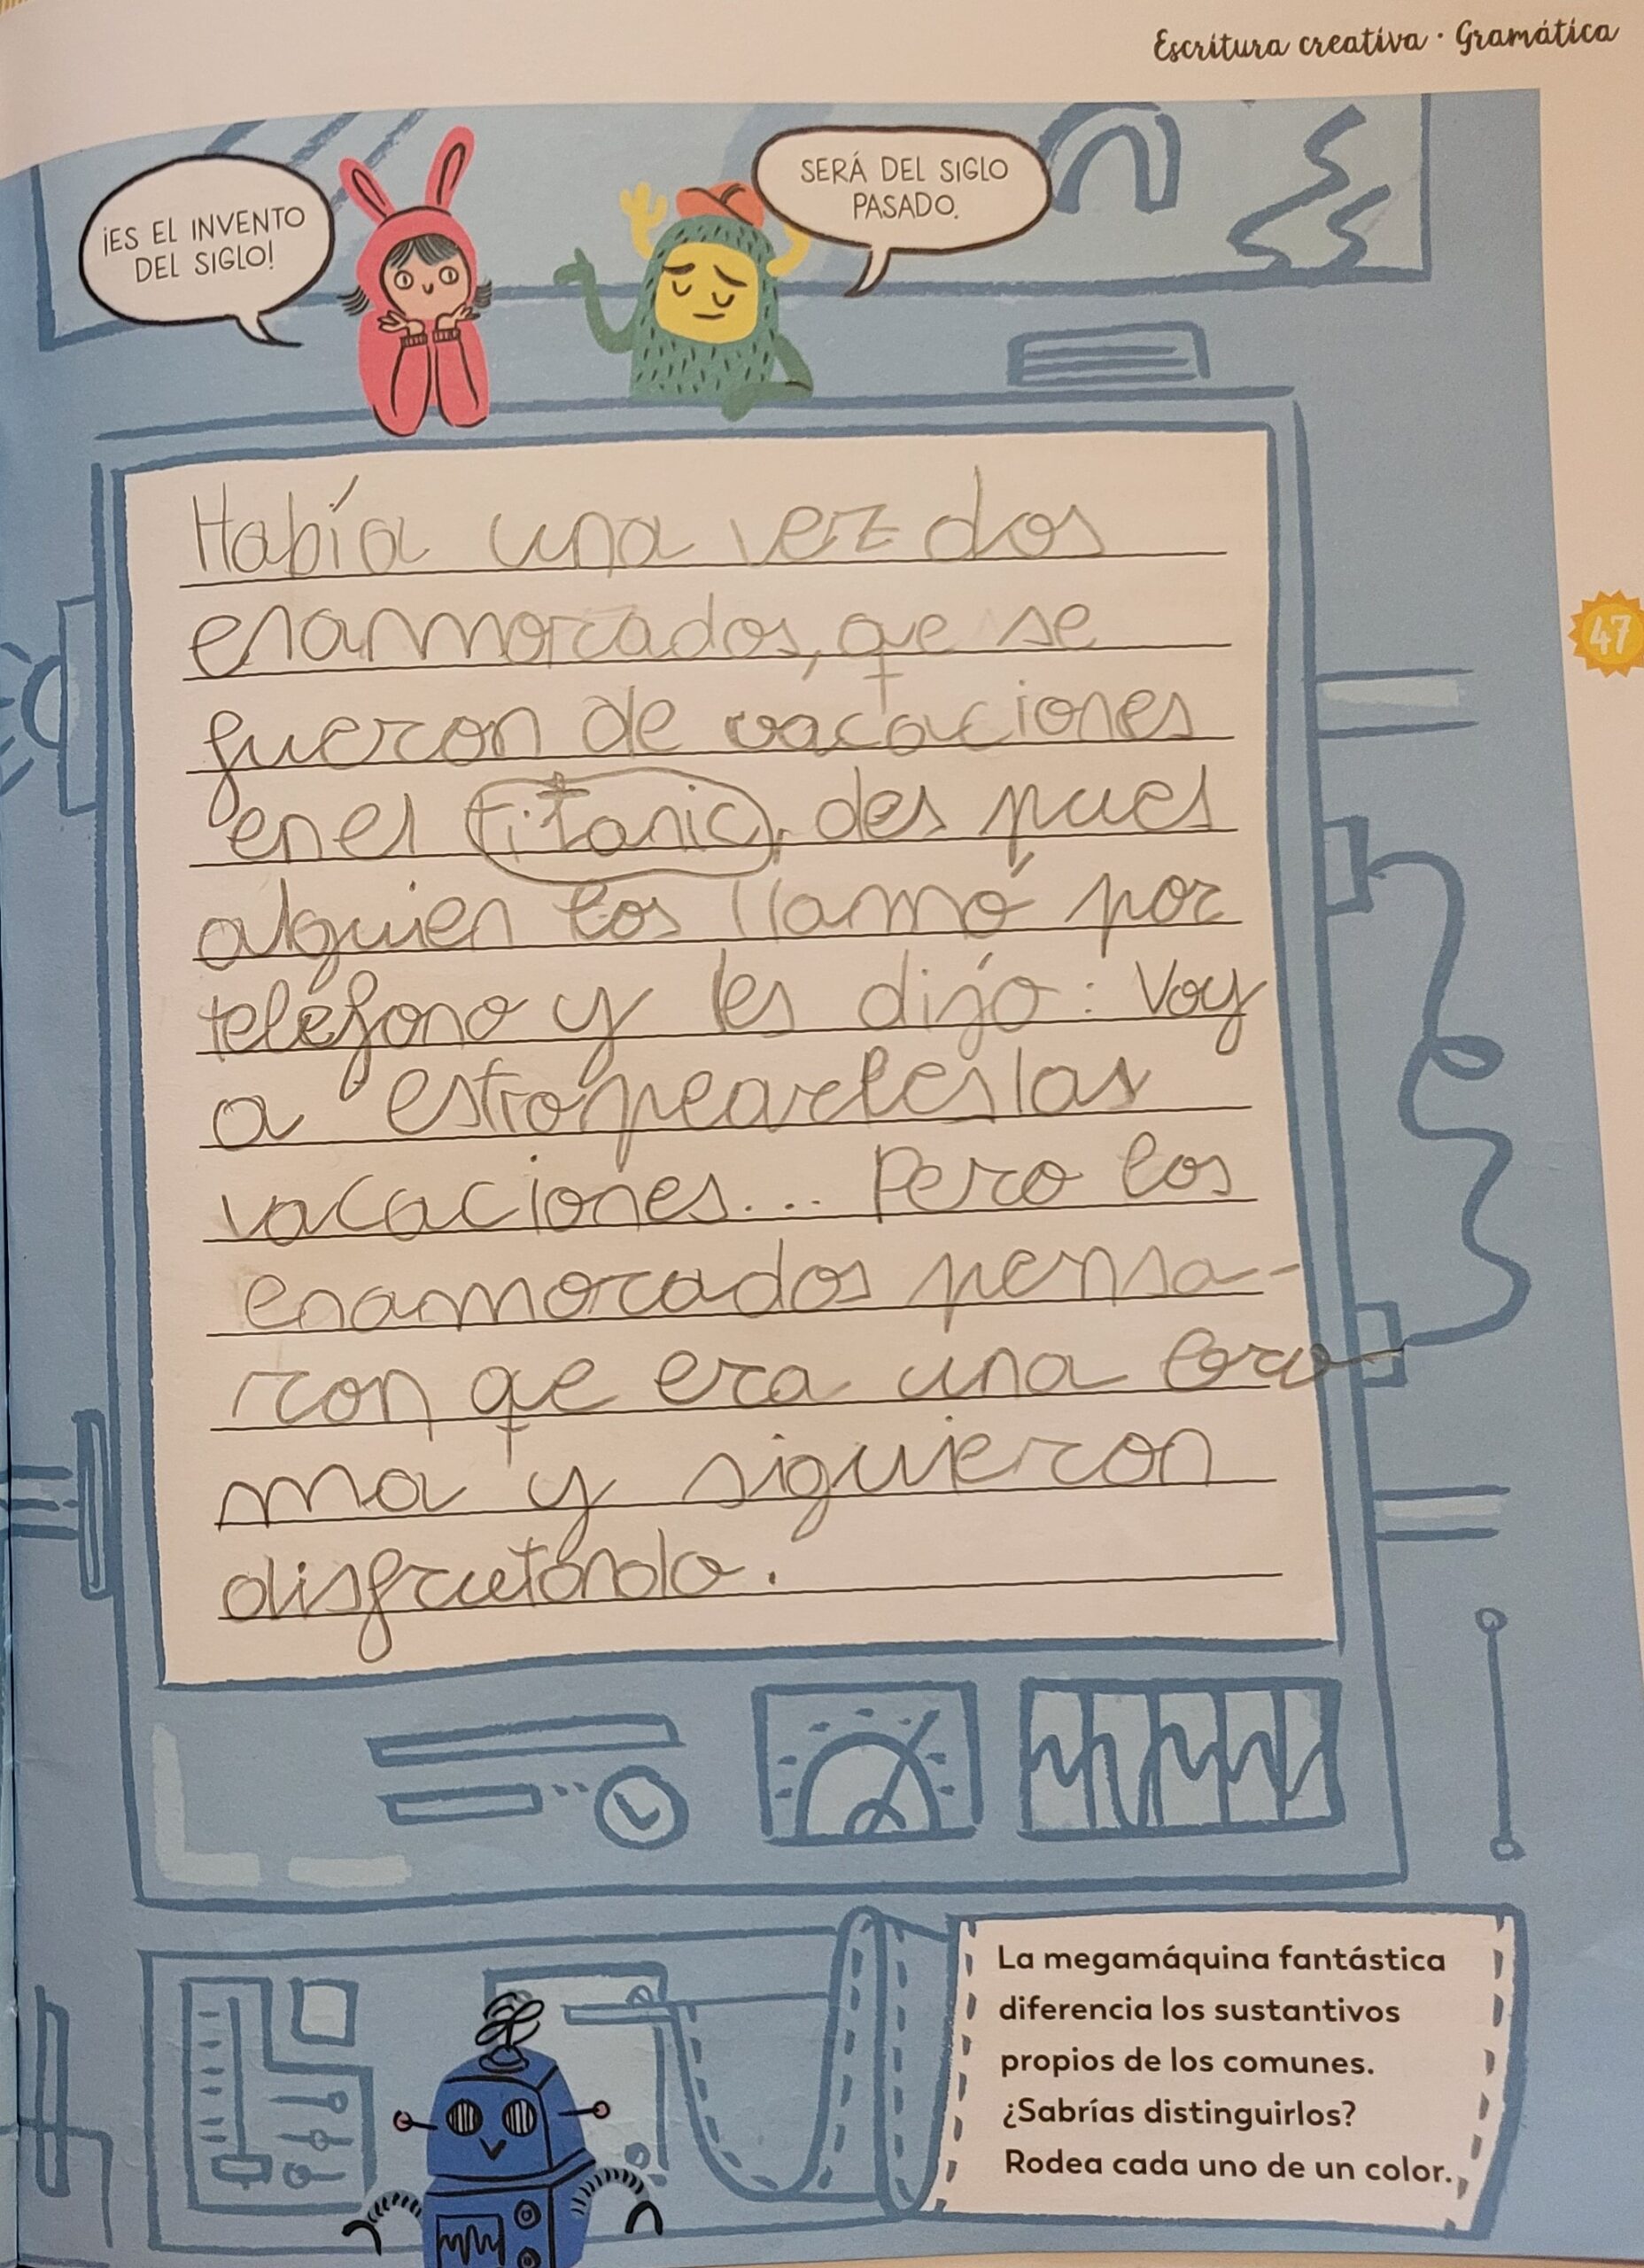 Escritura creativa · Gramática
¡ES EL INVENTO
DEL SIGLO!
SERÁ DEL SIGLO
PASADO.
Había una vez dos
enamorados, qe se
fueron de vacaciones
en el titanic, des pues
alguien los llamó por
teléfono y les dijo: Voy
a estropearles las
vacaciones... Pero los
enamorados pensa-
ron qe era una bro
ma y siguieron
disfrutando.
47
La megamáquina fantástica
diferencia los sustantivos
propios de los comunes.
¿Sabrías distinguirlos?
Rodea cada uno de un color.